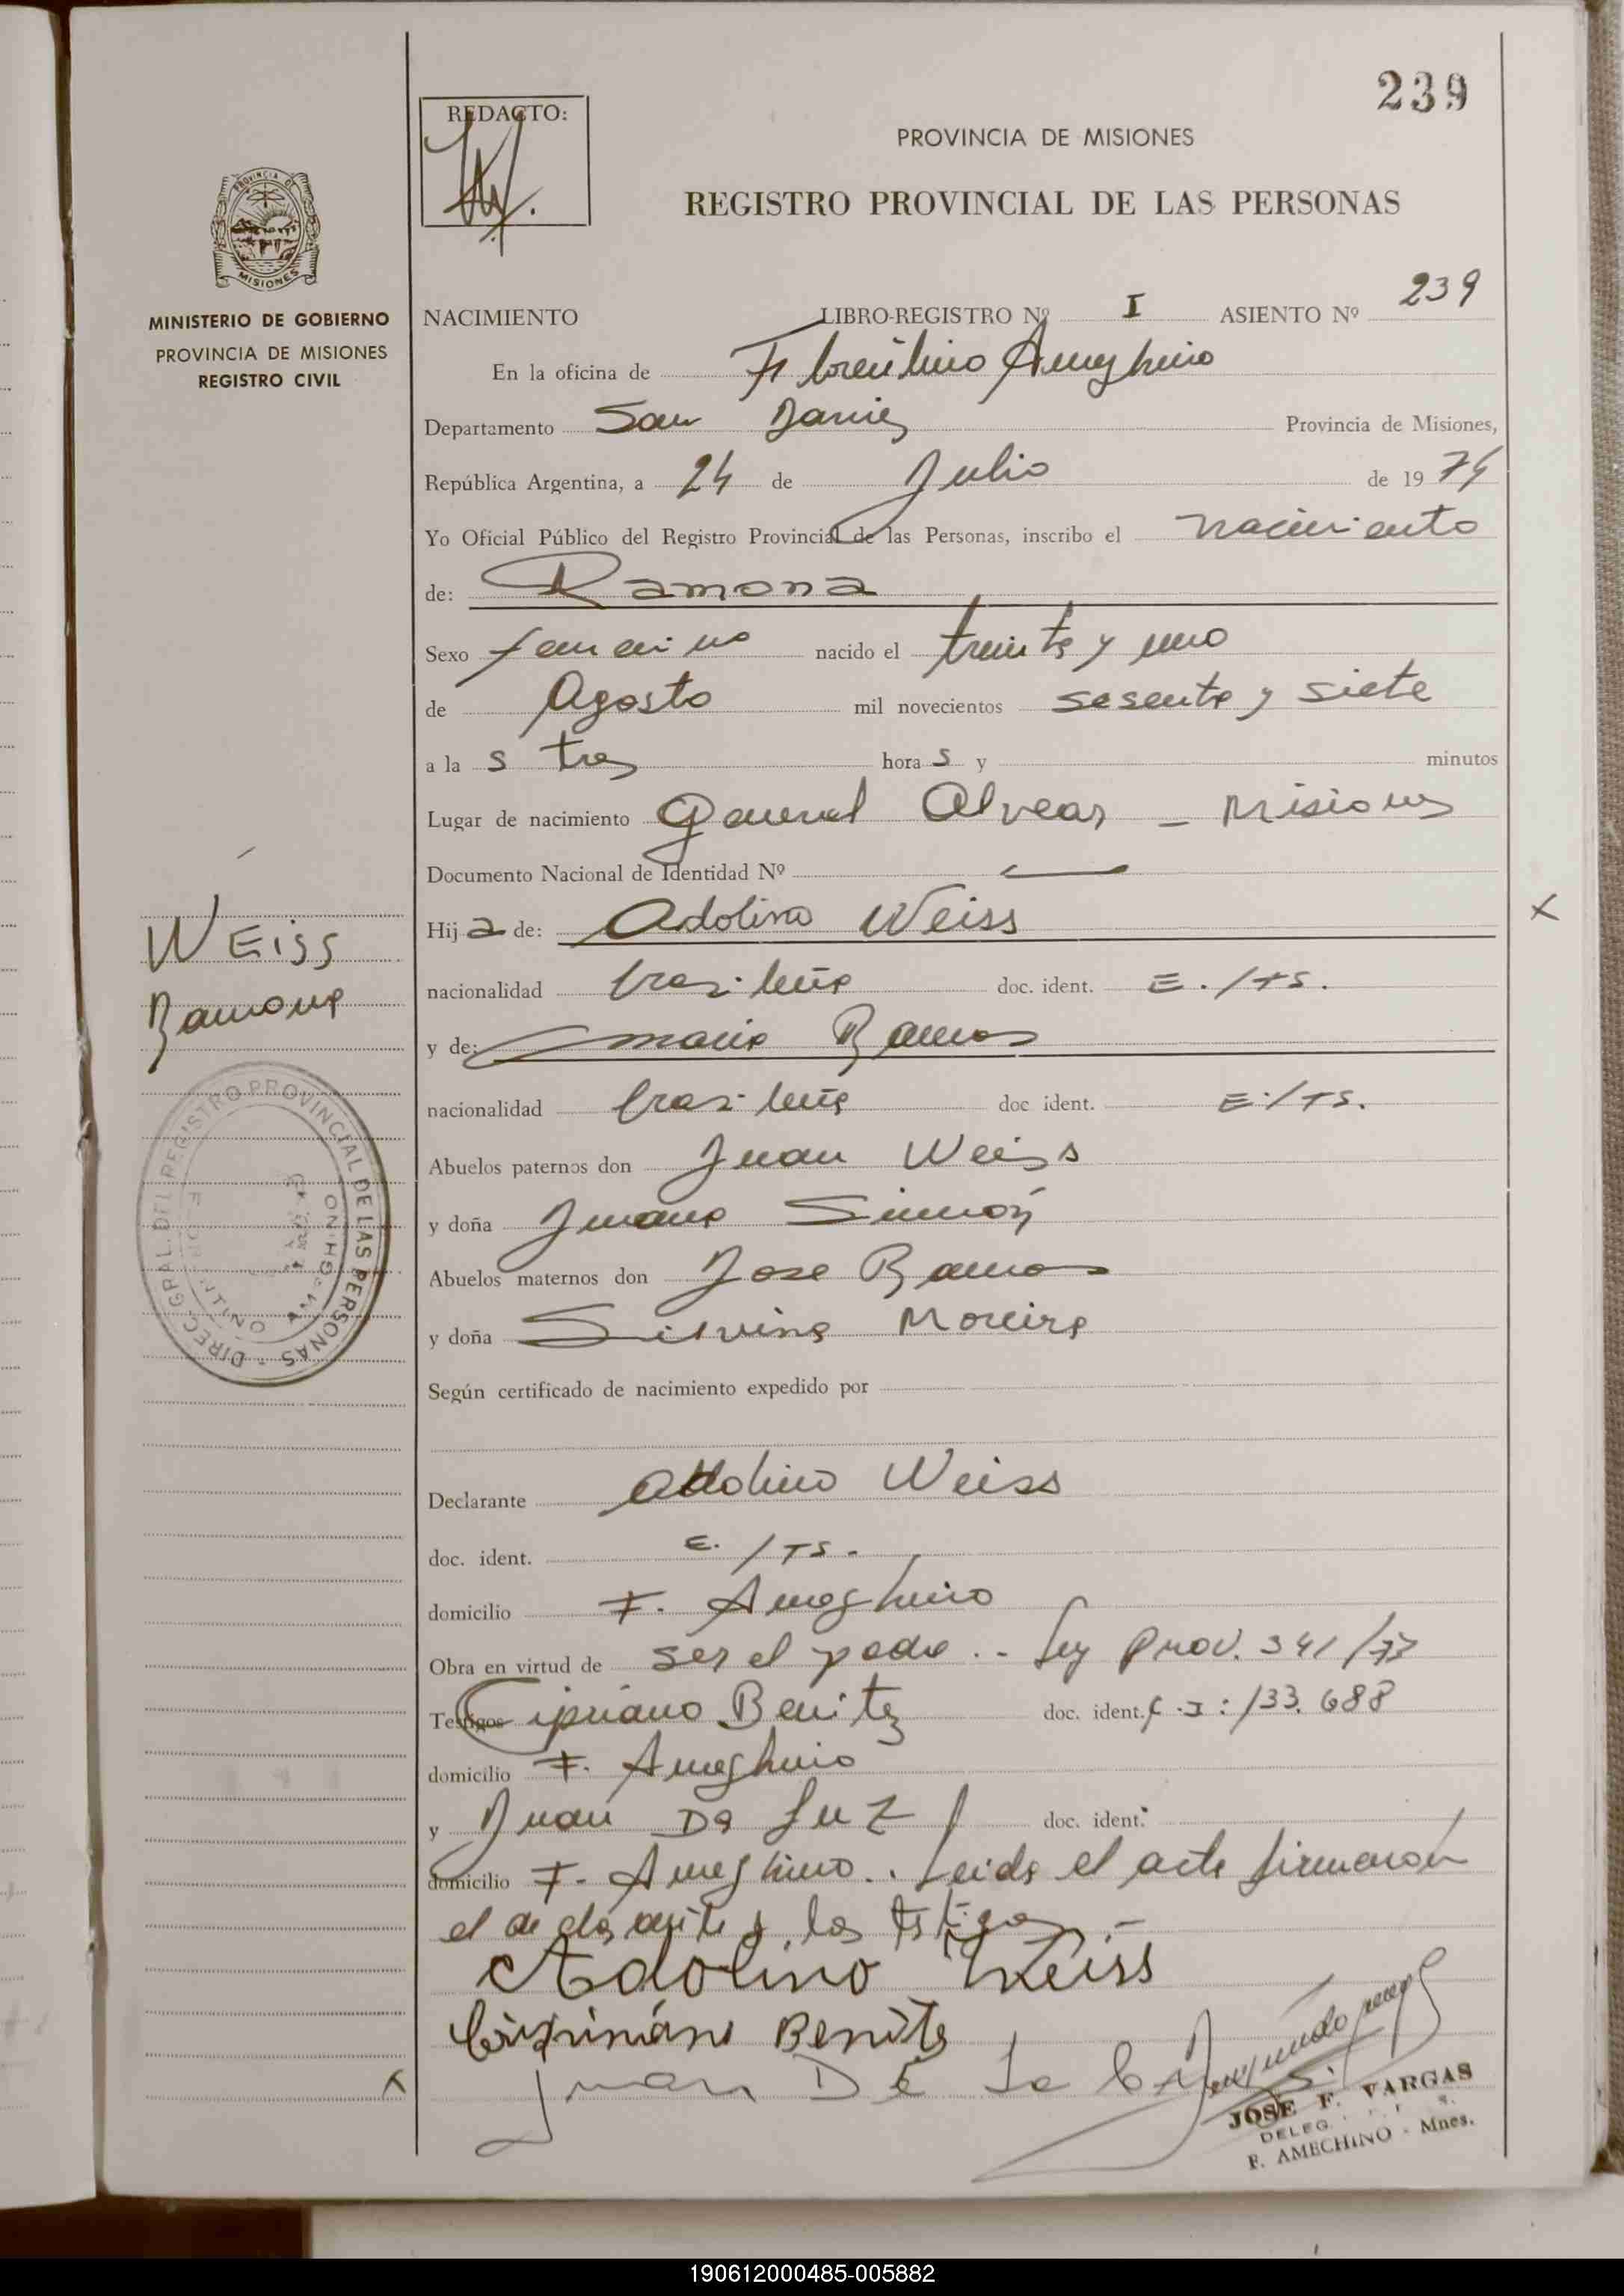 239
REDACTO:
PROVINCIA DE MISIONES
REGISTRO PROVINCIAL DE LAS PERSONAS
PROVINCIA DE
MISIONES
MINISTERIO DE GOBIERNO
PROVINCIA DE MISIONES
REGISTRO CIVIL
NACIMIENTO LIBRO-REGISTRO Nº I ASIENTO Nº 239
En la oficina de Florentino Ameghino
Departamento San Javier Provincia de Misiones,
República Argentina, a 24 de Julio de 1974
Yo Oficial Público del Registro Provincial de las Personas, inscribo el nacimiento
de: Ramona
Sexo femenino nacido el treinta y uno
de Agosto mil novecientos sesenta y siete
a la s tres hora s y minutos
Lugar de nacimiento General Alvear - Misiones
Documento Nacional de Identidad Nº
Hij a de: Adolino Weiss
nacionalidad brasileña doc. ident. E./TS.
y de: Maria Ramos
nacionalidad brasileña doc ident. E./TS.
Abuelos paternos don Juan Weiss
y doña Juana Simón
Abuelos maternos don Jose Ramos
y doña Silvina Moreira
Según certificado de nacimiento expedido por
Declarante Adolino Weiss
doc. ident. E. /TS.
domicilio F. Ameghino
Obra en virtud de ser el padre .- Ley Prov. 341/73
Testigos Cipriano Benitez doc. ident. C.I: 133.688
domicilio F. Ameghino
y Juan Da Luz doc. ident.
domicilio F. Ameghino. Leida el acta firmaron
el declarante y los testigos -
Adolino Weiss
Benites
Juan De La
JOSE F. VARGAS
DELEG.
F. AMEGHINO - Mnes.
WEISS
Ramona
DIREC. GRAL. DEL REGISTRO PROVINCIAL DE LAS PERSONAS
190612000485-005882